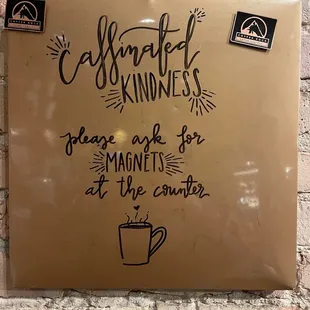 Caffinated
KINDNESS
please ask for
MAGNETS
at the counter